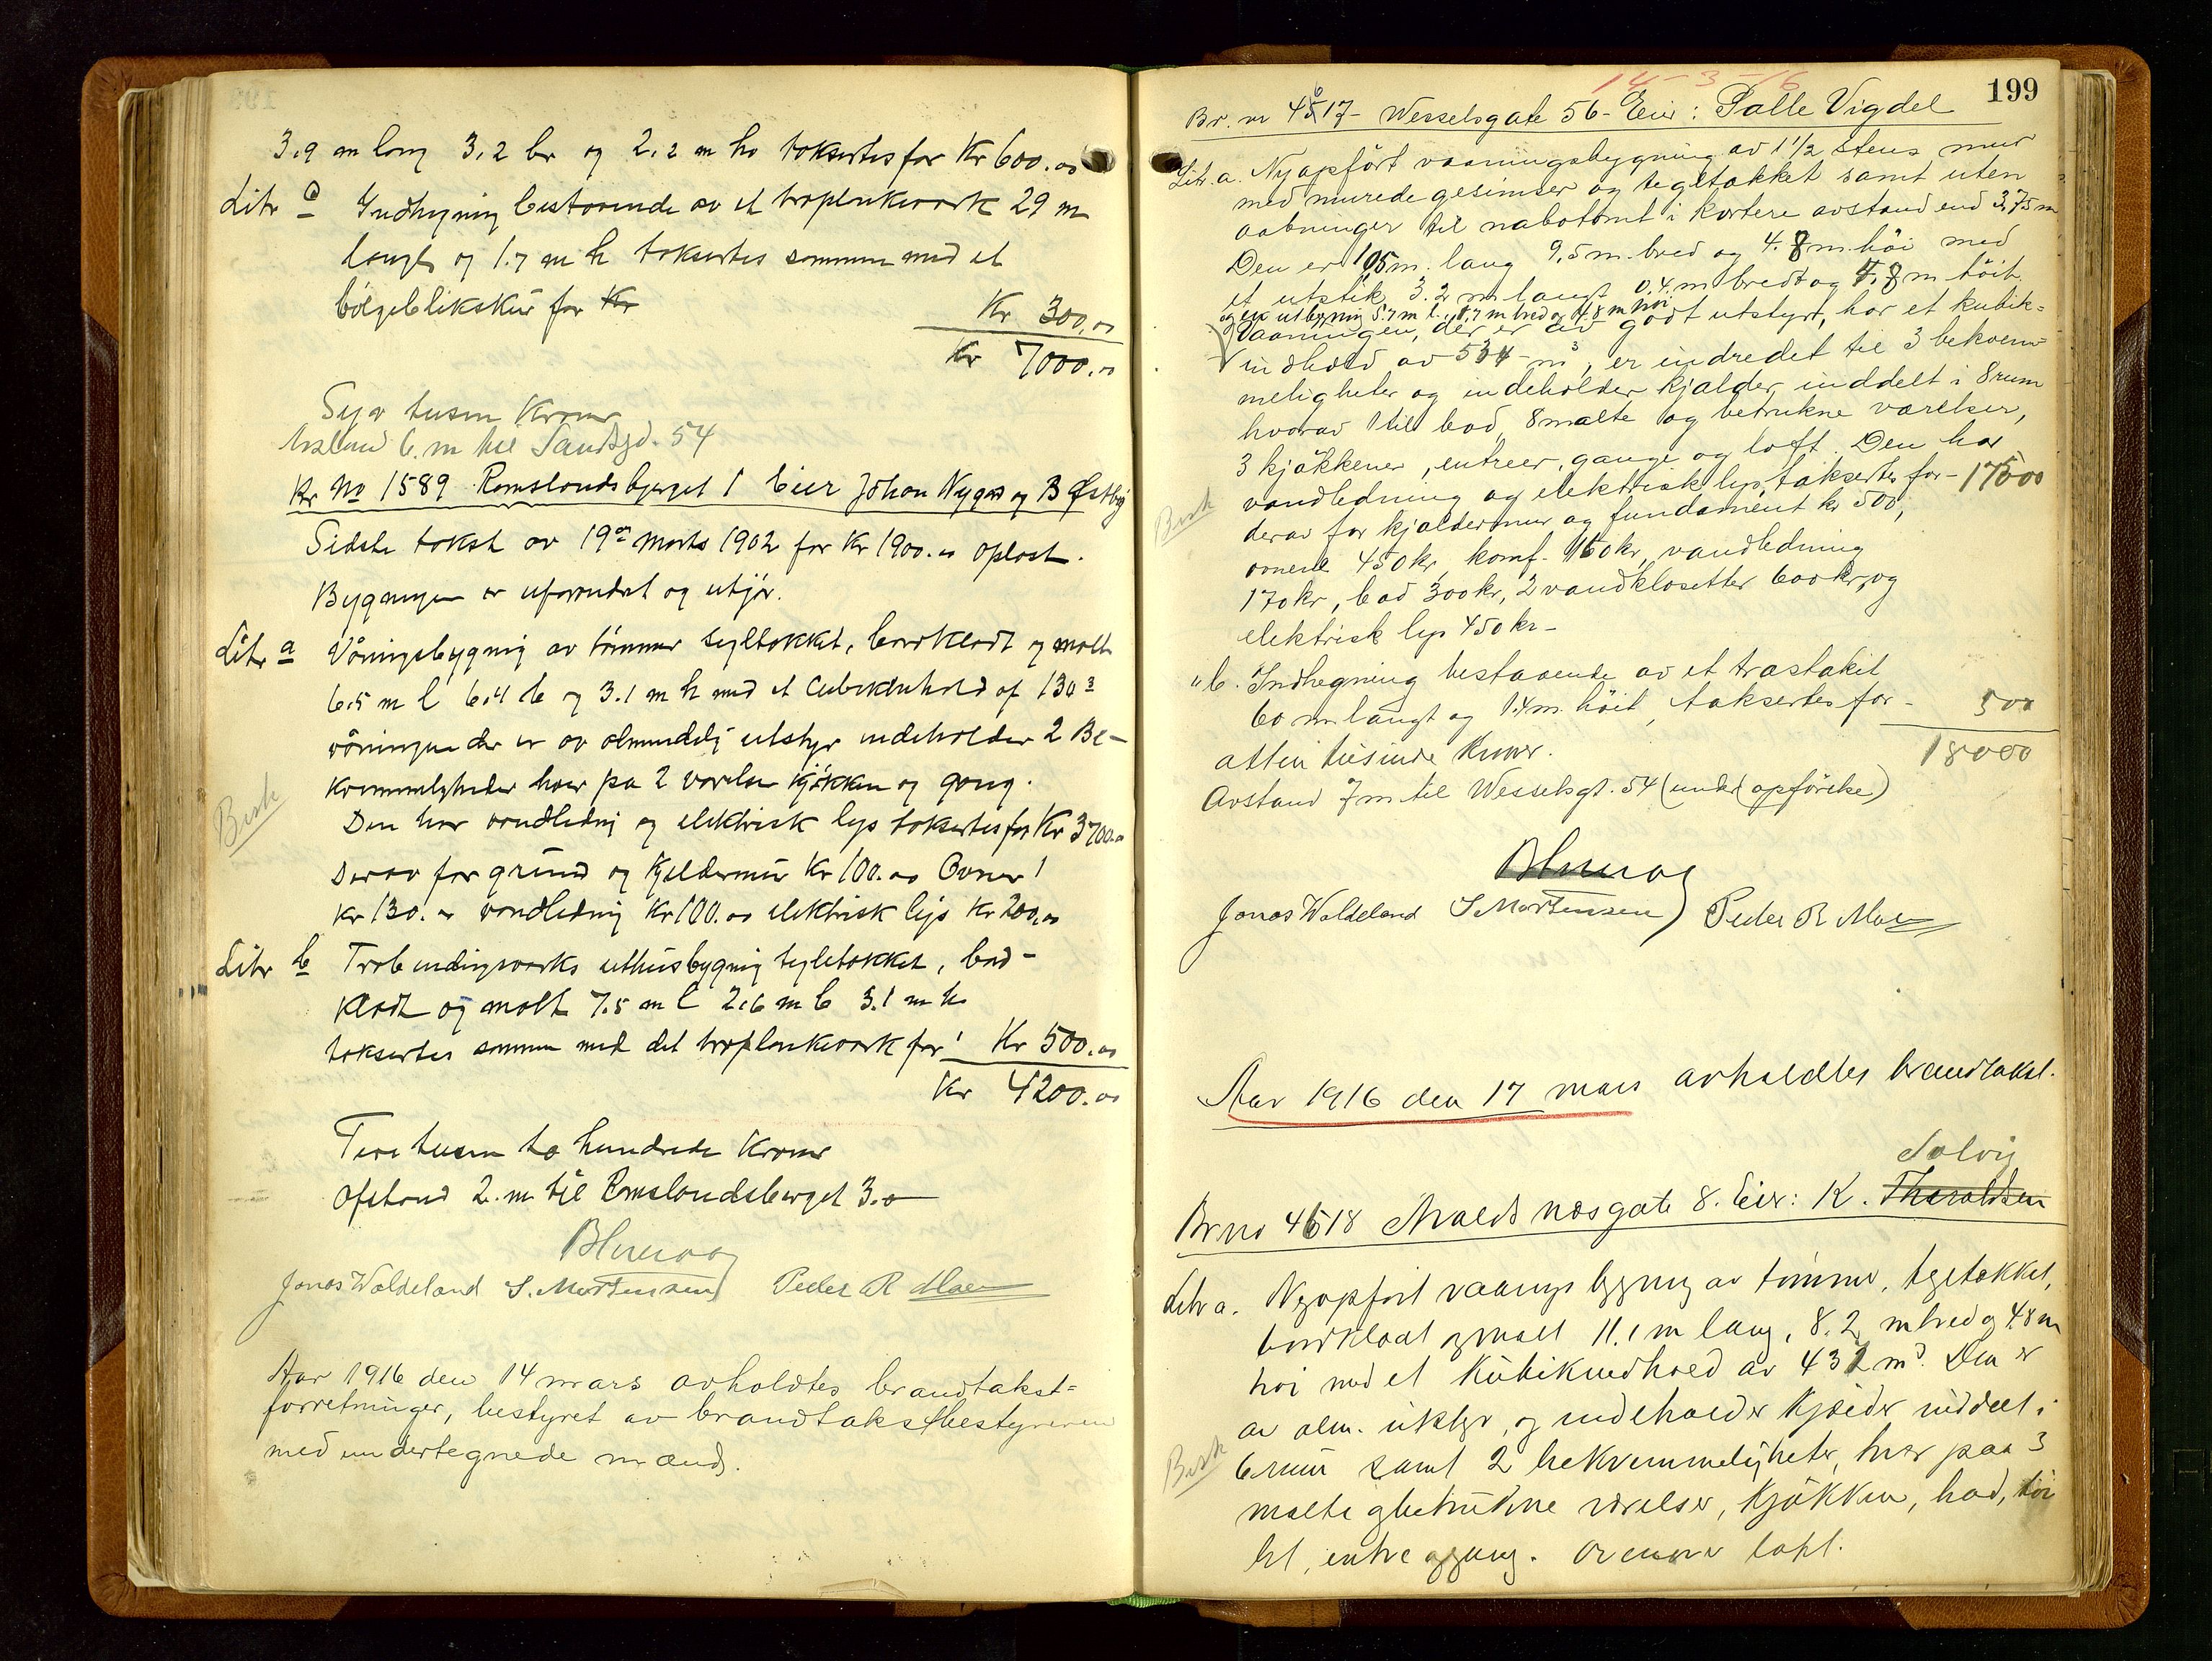 3.9 m lang 3.2 br og 2.2 m ho taksertes for Kr 600.00
Litr c Indhegning bestaaende av et træplankeværk 29 m
langt og 1.7 m h taksertes sammen med et
bölgeblikskür for Kr
Kr 300.00
Kr 7000.00
Syv tusen Kroner
Avstand 6. m til Sandsgd. 54
Br No 1589 Ramslandsbjerget 1 Eier Johan Nygas og B Østby
Sidste takst av 19de Marts 1902 for Kr 1900.00 oplæst.
Bygningen er uforandret og utgjör.
Litr a Våningsbygning av tömmer tegltækket, bordklædt og malt
6.5 m l 6.4 b og 3.1 m h med et Cubikinhold af 130 3
våningen der er av almindelig utstyr indeholder 2 Be-
kvemmeligheder hver på 2 værelser kjökken og gang.
Den har vandledning og elektrisk lys taksertes for Kr 3700.00
Derav for grund og Kjeldermür Kr 100.00 Ovner
Kr 130.00 vandledning Kr 100.00 elektrisk lys Kr 200.00
Litr b Træbindingsværks uthüsbygning tegltækket, bord-
klædt og malt 7.5 m l 2.6 m b 3.1 m h
taksertes sammen med det træplankeværk for Kr 500.00
Kr 4200.00
Fire tusen to hundrede Kroner
Afstand 2. m til Ramslandsberget 3.
Jonas Waldeland S. Mortensen Peder R Moe
Aar 1916 den 14 mars avholdtes brandtakst=
forretninger, bestyret av brandtakstbestyreren
med undertegnede mænd.
Besk
199
14-3-16
Br. nr 4617- Wesselsgate 56- Eier: Palle Vigdel
Litr. a. Nyopført vaaningsbygning av 1 1/2 stens mur
med murede gesimser og tegltækket samt uten
aabninger til nabotomt i kortere avstand end 3,75 m
Den er 105m. lang 9,5 m. bred og 4.8 m. höi med
et utstik 3.2 m langt 0.4 m bredt og 4.8 m höit
og en utbygning 5.7 m l. 1.7 m bred og 4.8 m höi
Vaaningen, der er av godt utstyrt, har et kubik=
indhold av 534 m3, er indredet til 3 bekvem=
meligheter og indeholder kjælder inddelt i 8 rum
hvorav 1 til bad, 8 malte og betrukne værelser,
3 kjökkener, entreer, gange og loft. Den har
vandledning og elektrisk lys, taksertes for - 17500
derav for kjældermur og fundament kr 500,
ovnene 450 kr, komf. 160 kr, vandledning
170 kr, bad 300 kr, 2 vandklosetter 600 kr, og
elektrisk lys 450 kr -
Besk
" b. Indhegning bestaaende av et træstakit
60 m. langt og 1.4 m. höit, taksertes for - 500
18000
atten tusinde kroner.
Avstand 7 m til Wesselsgt. 54 (under opförelse)
Jonas Waldeland S Mortensen Peder R Moe
Aar 1916 den 17 mars avholdtes brandtakst.
Solvig
Br no 4618 Avaldsnæsgate 8. Eier: K. Tharaldsen
Litr a. Nyopfört vaanings bygning av tömmer, tegltækket,
bordklædt og malt 11.1 m lang, 8.2 m bred og 4.8 m
höi med et Kübikindhold av 432 m3. Den er
av alm. ütstyr, og indeholder Kjælder inddelt i
6 rum samt 2 bekvemmeligheter, hver paa 3
malte og betrükne værelser, Kjökken, bad, toi
let, entre og gang. Ovenover loft.
Besk